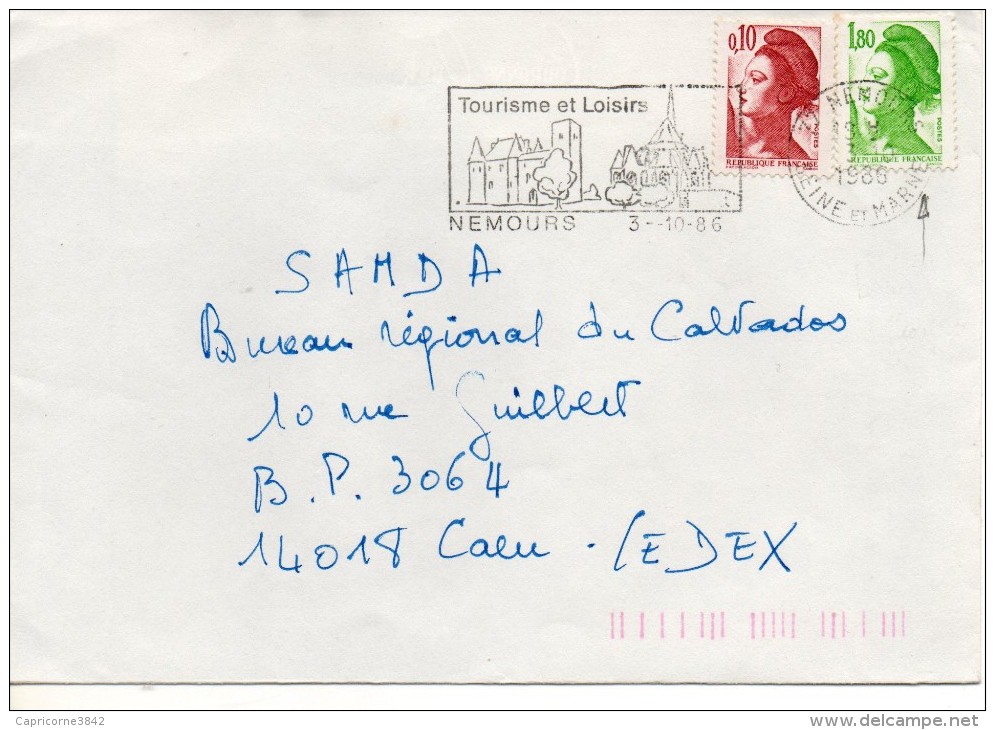 Tourisme et Loisirs
NEMOURS 3--10-86
0,10
POSTES
REPUBLIQUE FRANÇAISE
1,80
POSTES
REPUBLIQUE FRANÇAISE
77 NEMOURS
1986
SEINE ET MARNE
SAMDA
Bureau régional du Calvados
10 rue Guilbert
B.P. 3064
14018 Caen . CEDEX
Capricorne3842
delcampe.net